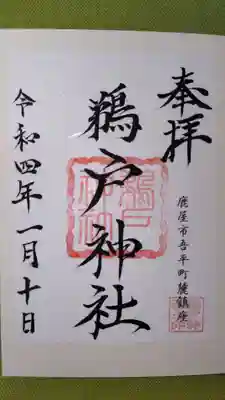 奉拝
鹿屋市吾平町麓鎮座
鵜戸神社
令和四年一月十日